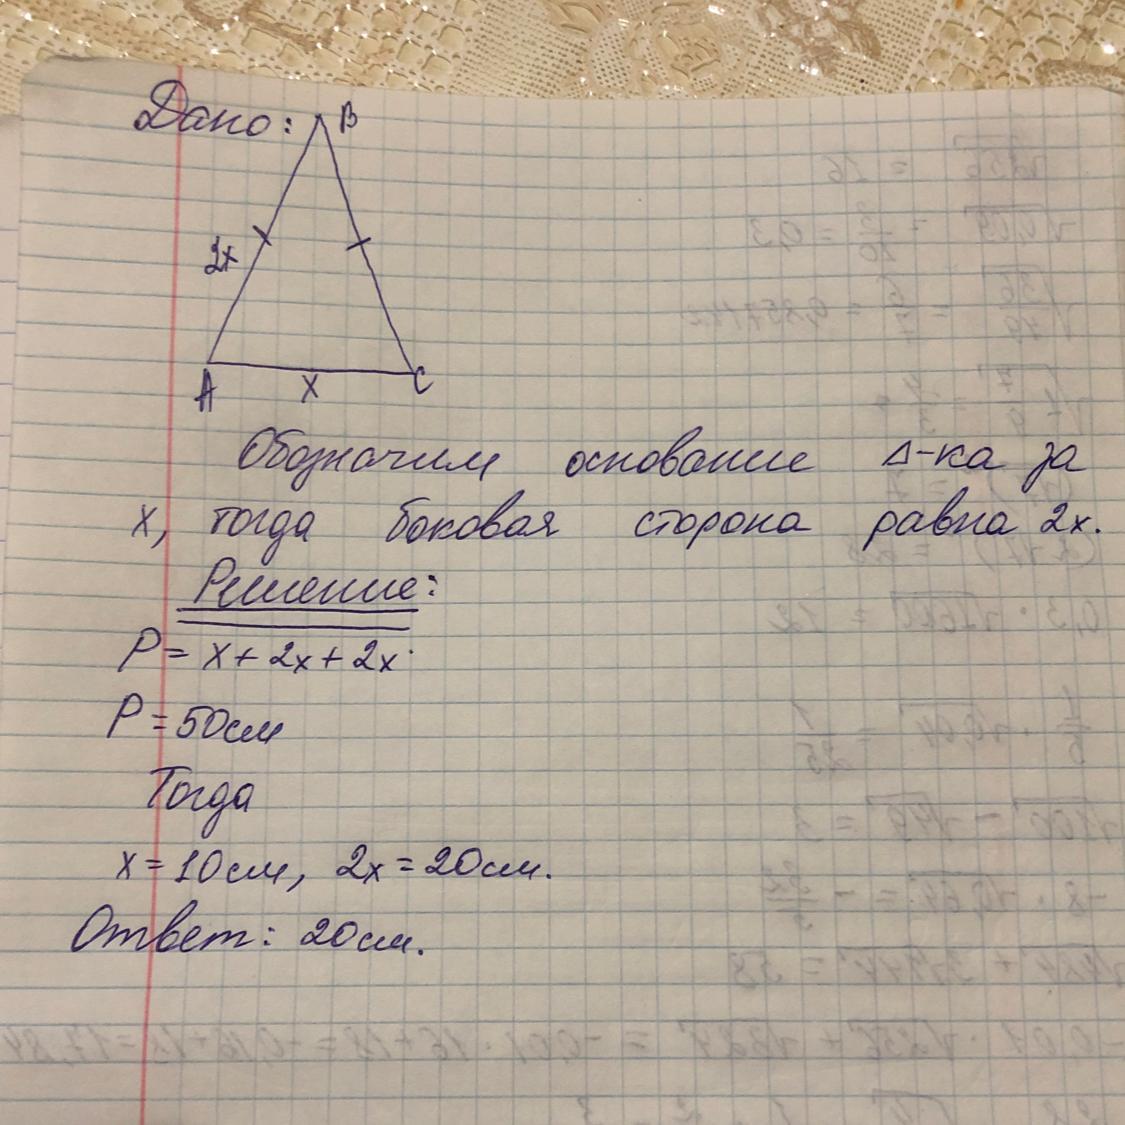 Дано:
B
2x
A
x
C
Обозначим основание Δ-ка за
x, тогда боковая сторона равна 2x.
Решение:
P = x + 2x + 2x
P = 50см
Тогда
x = 10см, 2x = 20см.
Ответ: 20см.